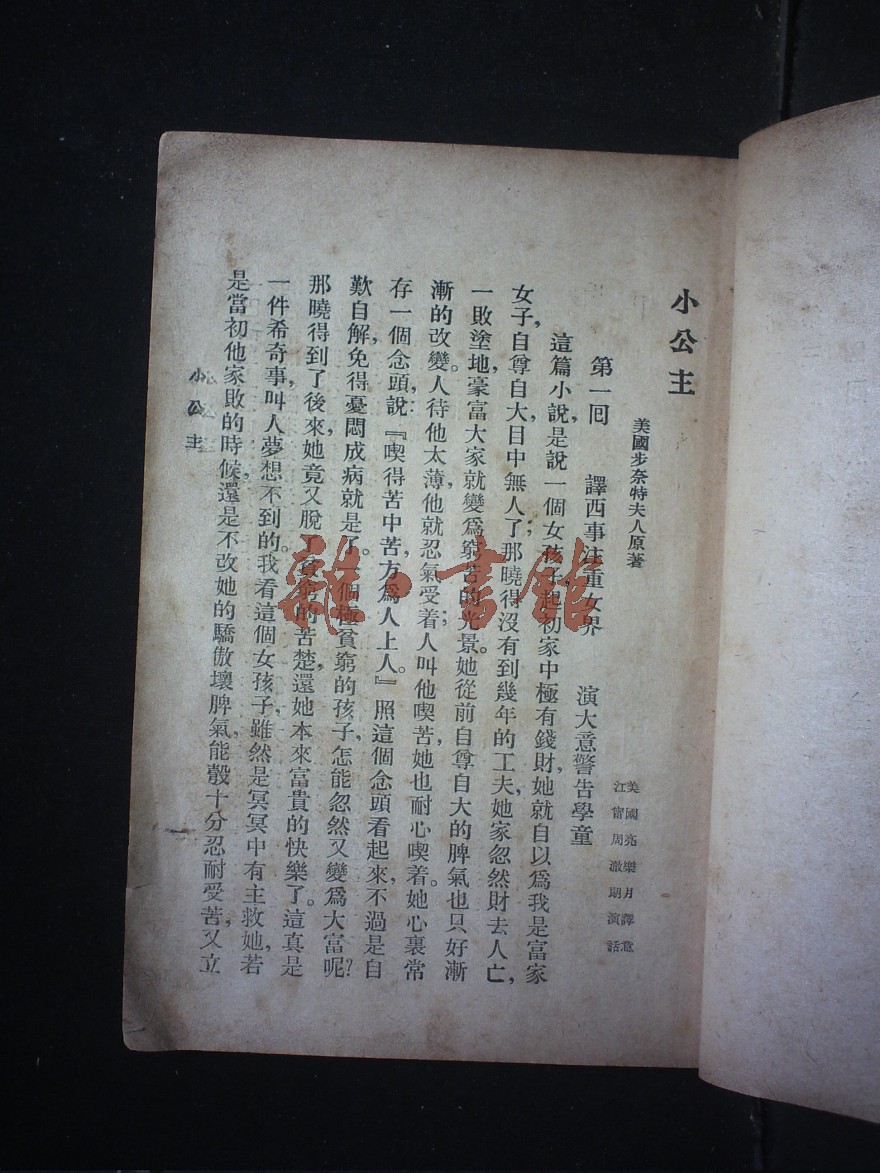 小公主
美國步奈特夫人原著
美國亮樂月譯意
江甯周澈朗演話
第一回 譯西事注重女界 演大意警告學童
這篇小說，是說一個女孩子，起初家中極有錢財，她就自以爲我是富家
女子，自尊自大，目中無人了；那曉得沒有到幾年的工夫，她家忽然財去人亡，
一敗塗地，豪富大家，就變爲窮苦的光景。她從前自尊自大的脾氣，也只好漸
漸的改變。人待他太薄，他就忍氣受着；人叫他喫苦，她也耐心喫着。她心裏常
存一個念頭，說：『喫得苦中苦，方爲人上人。』照這個念頭看起來，不過是自
歎自解，免得憂悶成病就是了。一個極貧窮的孩子，怎能忽然又變爲大富呢？
那曉得到了後來，她竟又脫了貧窮的苦楚，還她本來富貴的快樂了。這眞是
一件希奇事，叫人夢想不到的。我看這個女孩子，雖然是冥冥中有主救她，若
是當初他家敗的時候，還是不改她的驕傲壞脾氣，能彀十分忍耐受苦，又立
小公主
一
雜·書館